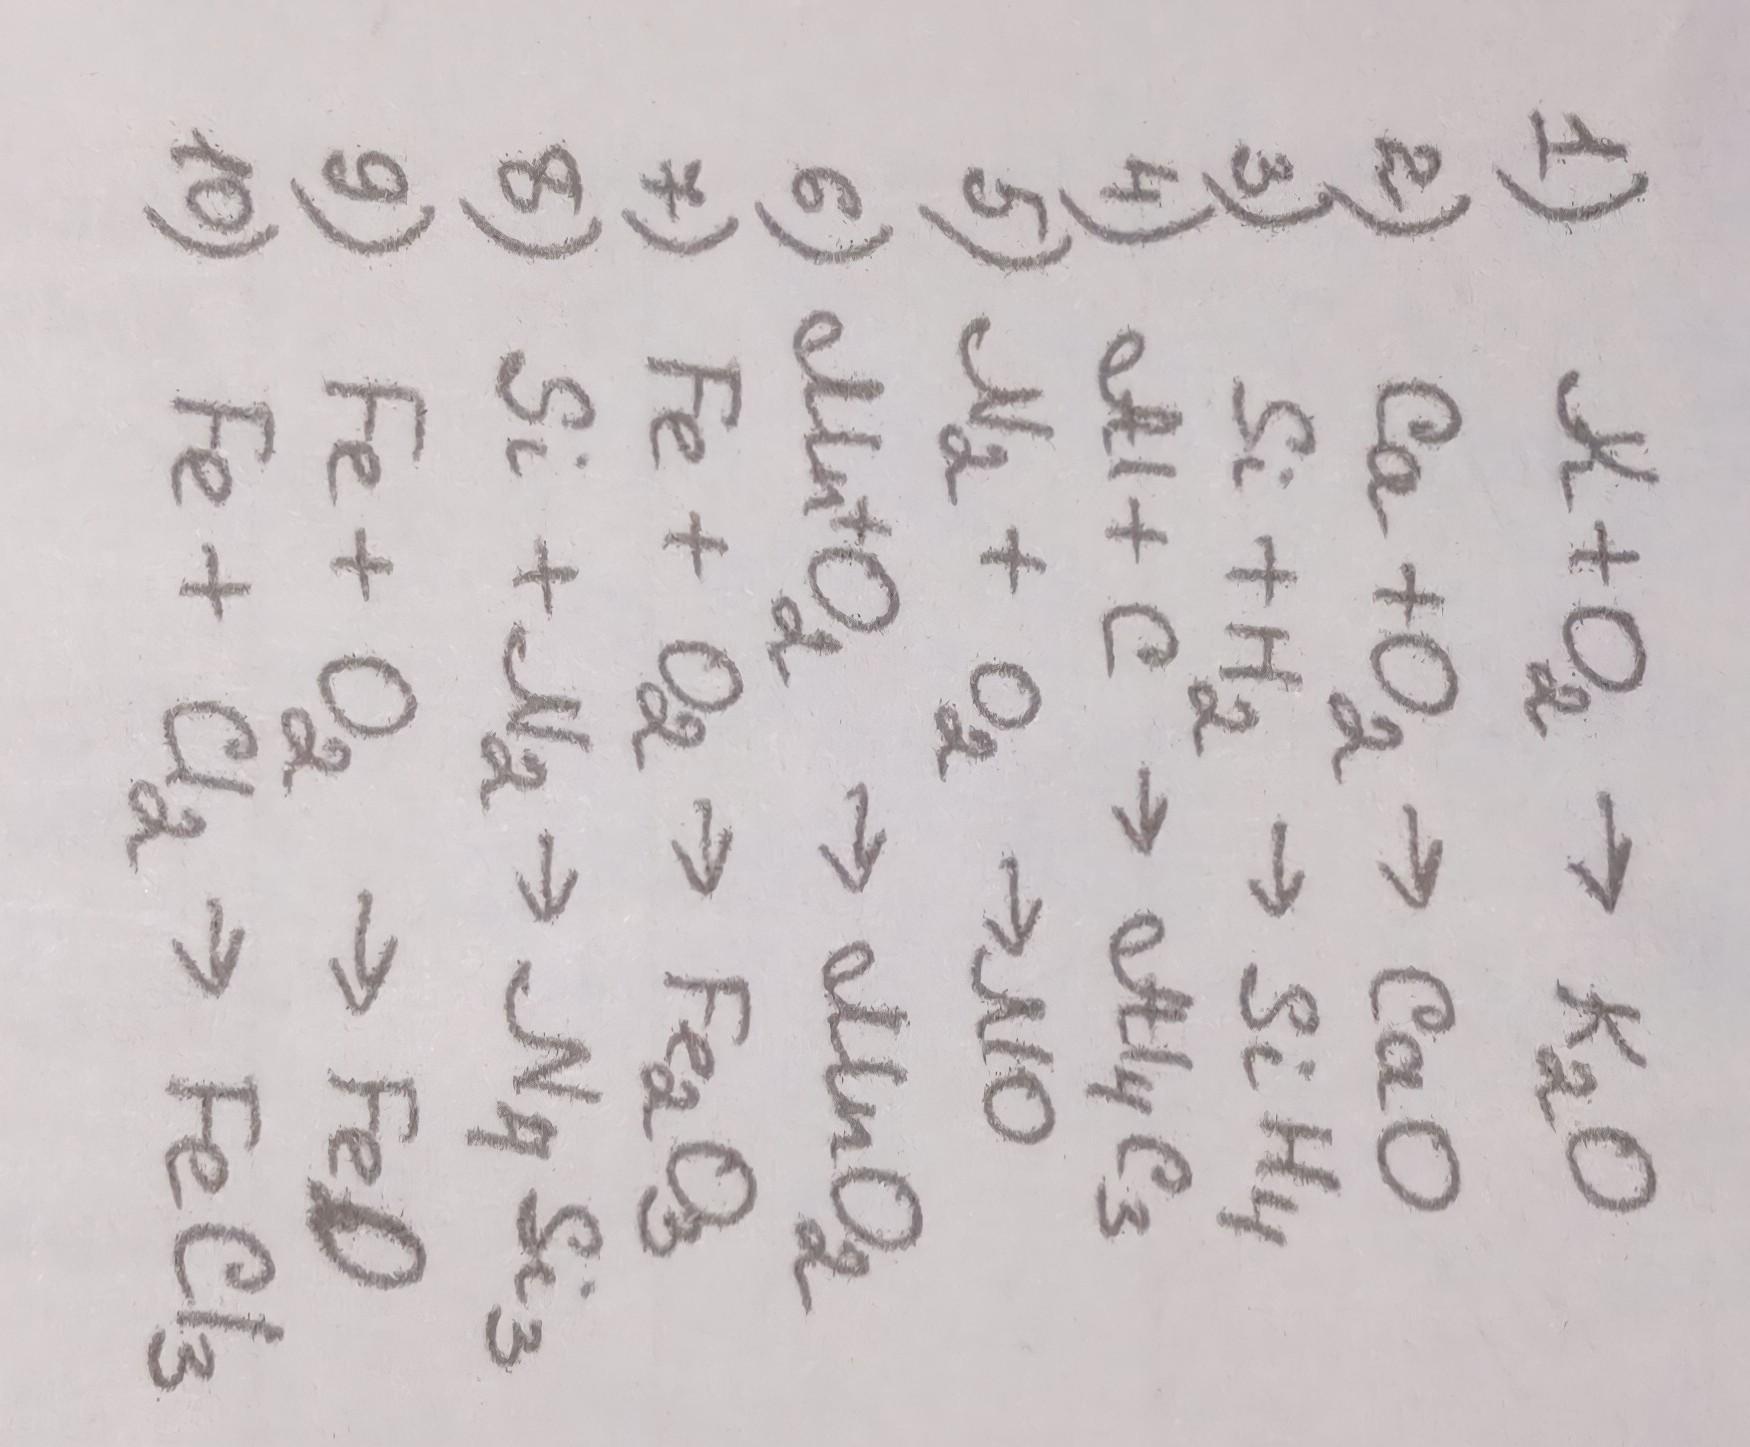 1) K + O₂ → K₂O
2) Ca + O₂ → CaO
3) Si + H₂ → SiH₄
4) Al + C → Al₄C₃
5) N₂ + O₂ → NO
6) Mn + O₂ → MnO₂
7) Fe + O₂ → Fe₂O₃
8) Si + N₂ → N₄Si₃
9) Fe + O₂ → FeO
10) Fe + Cl₂ → FeCl₃